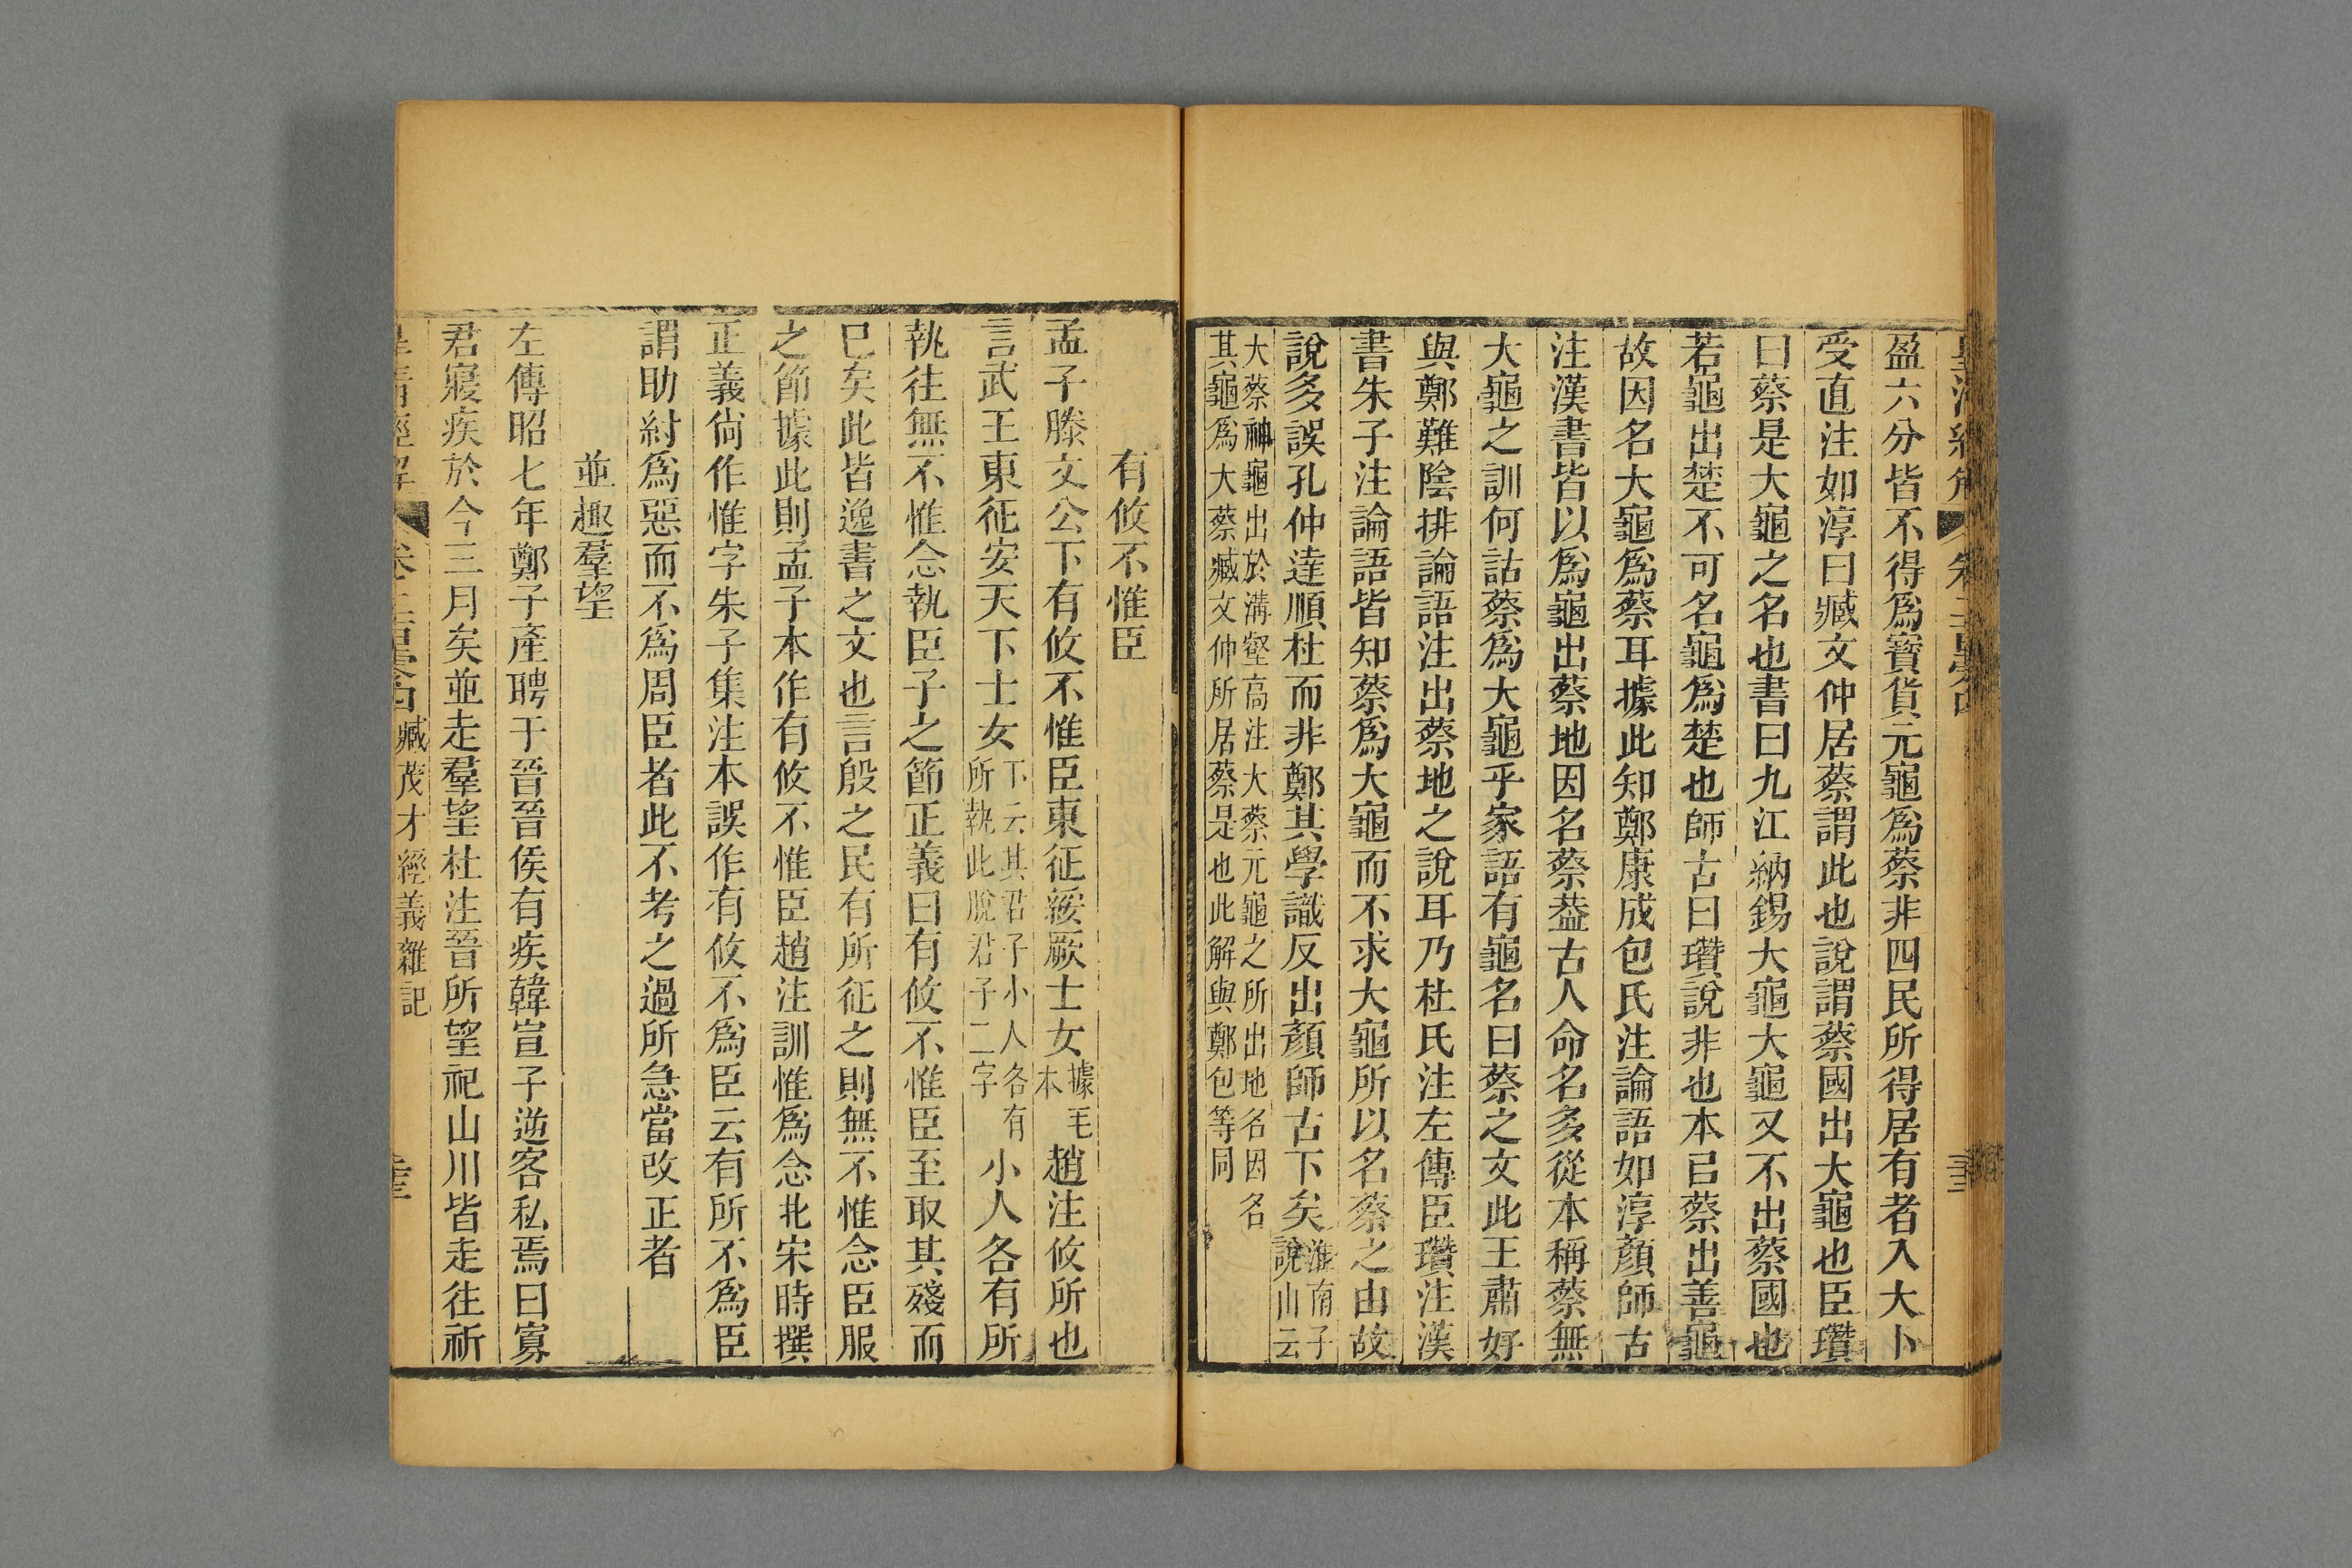 盈六分皆不得爲寶貨元龜爲蔡非四民所得居有者入大卜
受直注如淳曰臧文仲居蔡謂此也說謂蔡國出大龜也臣瓚
曰蔡是大龜之名也書曰九江納錫大龜大龜又不出蔡國也
若龜出楚不可名龜爲楚也師古曰瓚說非也本㠯蔡出善龜
故因名大龜爲蔡耳據此知鄭康成包氏注論語如淳顏師古
注漢書皆以爲龜出蔡地因名蔡葢古人命名多從本稱蔡無
大龜之訓何詁蔡爲大龜乎家語有龜名曰蔡之文此王肅好
與鄭難陰排論語注出蔡地之說耳乃杜氏注左傳臣瓚注漢
書朱子注論語皆知蔡爲大龜而不求大龜所以名蔡之由故
說多誤孔仲達順杜而非鄭其學識反出顏師古下矣淮南子說山云
大蔡神龜出於溝壑高注大蔡元龜之所出地名因名
其龜爲大蔡臧文仲所居蔡是也此解與鄭包等同
有攸不惟臣
孟子滕文公下有攸不惟臣東征綏厥士女據毛本趙注攸所也
言武王東征安天下士女下云其君子小人各有所執此脫君子二字小人各有所
執往無不惟念執臣子之節正義曰有攸不惟臣至取其殘而
巳矣此皆逸書之文也言殷之民有所征之則無不惟念臣服
之節據此則孟子本作有攸不惟臣趙注訓惟爲念北宋時撰
正義尙作惟字朱子集注本誤作有攸不爲臣云有所不爲臣
謂助紂爲惡而不爲周臣者此不考之過所急當改正者
並趣羣望
左傳昭七年鄭子產聘于晉晉侯有疾韓宣子逆客私焉曰寡
君寢疾於今三月矣並走羣望杜注晉所望祀山川皆走往祈
皇清經解 臧茂才經義雜記